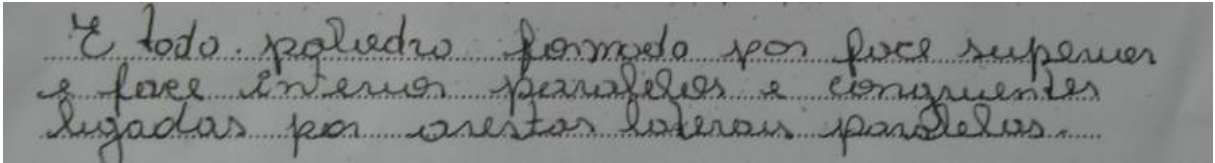 É todo poliedro formado por face superior
e face inferior paralelas e congruentes
ligadas por arestas laterais paralelas.